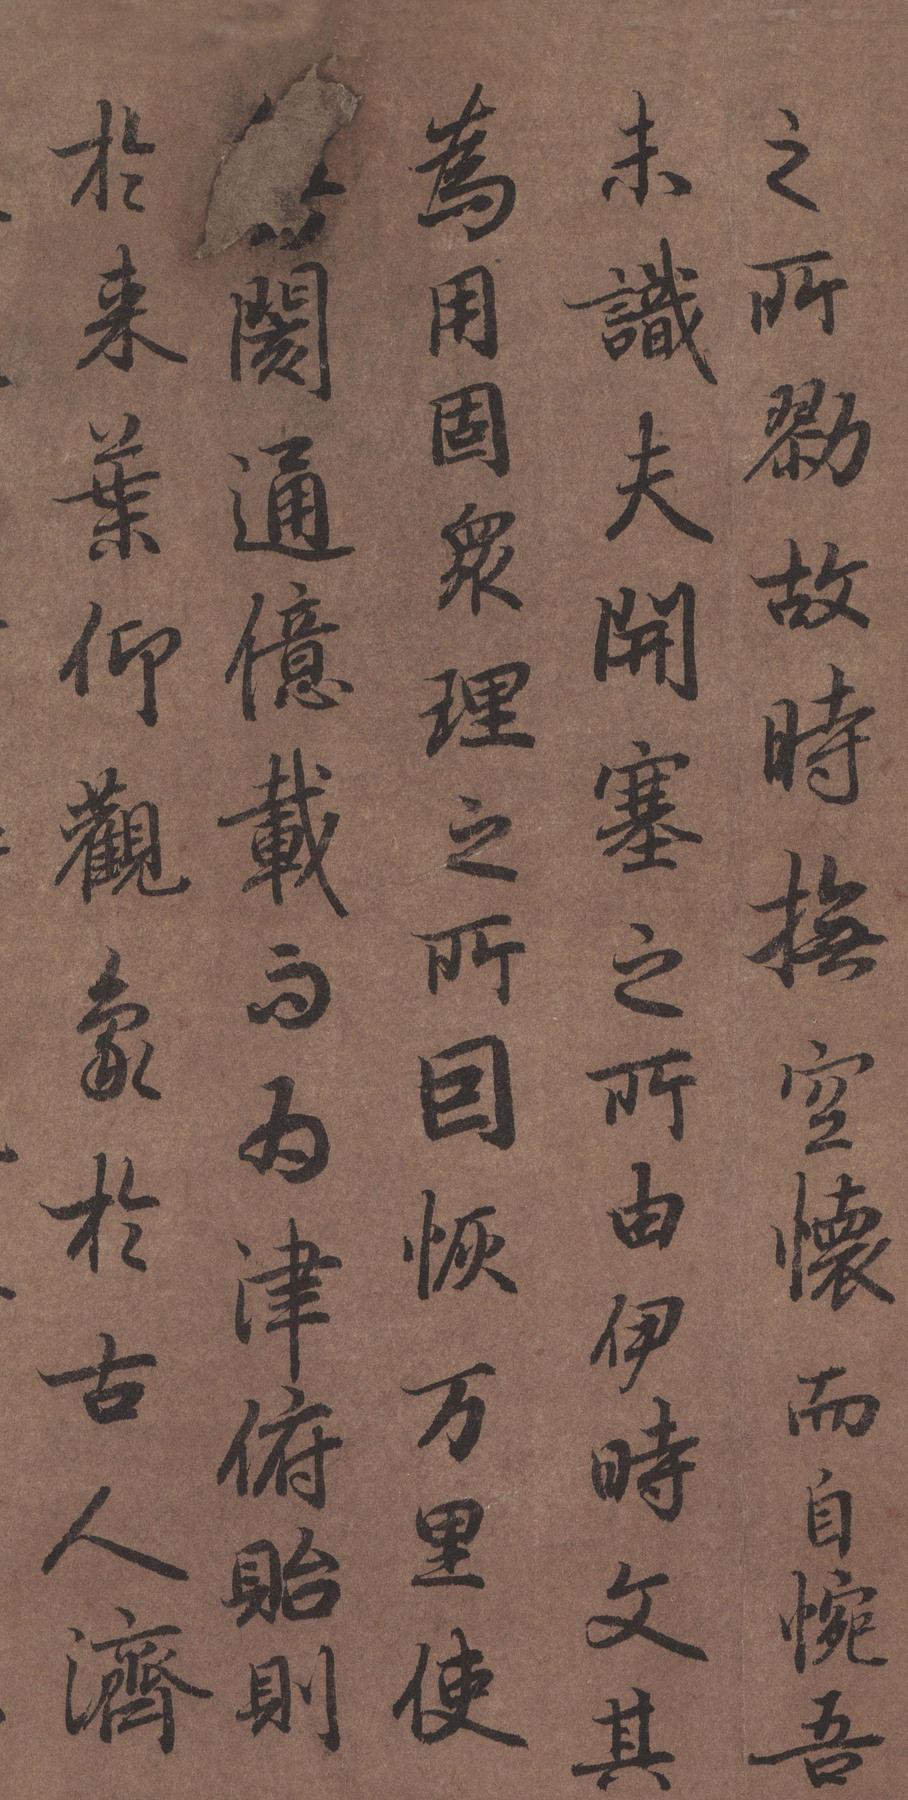 之所勠故時撫空懷而自惋吾
未識夫開塞之所由伊時文其
為用固衆理之所囙恢万里使
閡通億載而为津俯貽則
於来葉仰觀象於古人濟